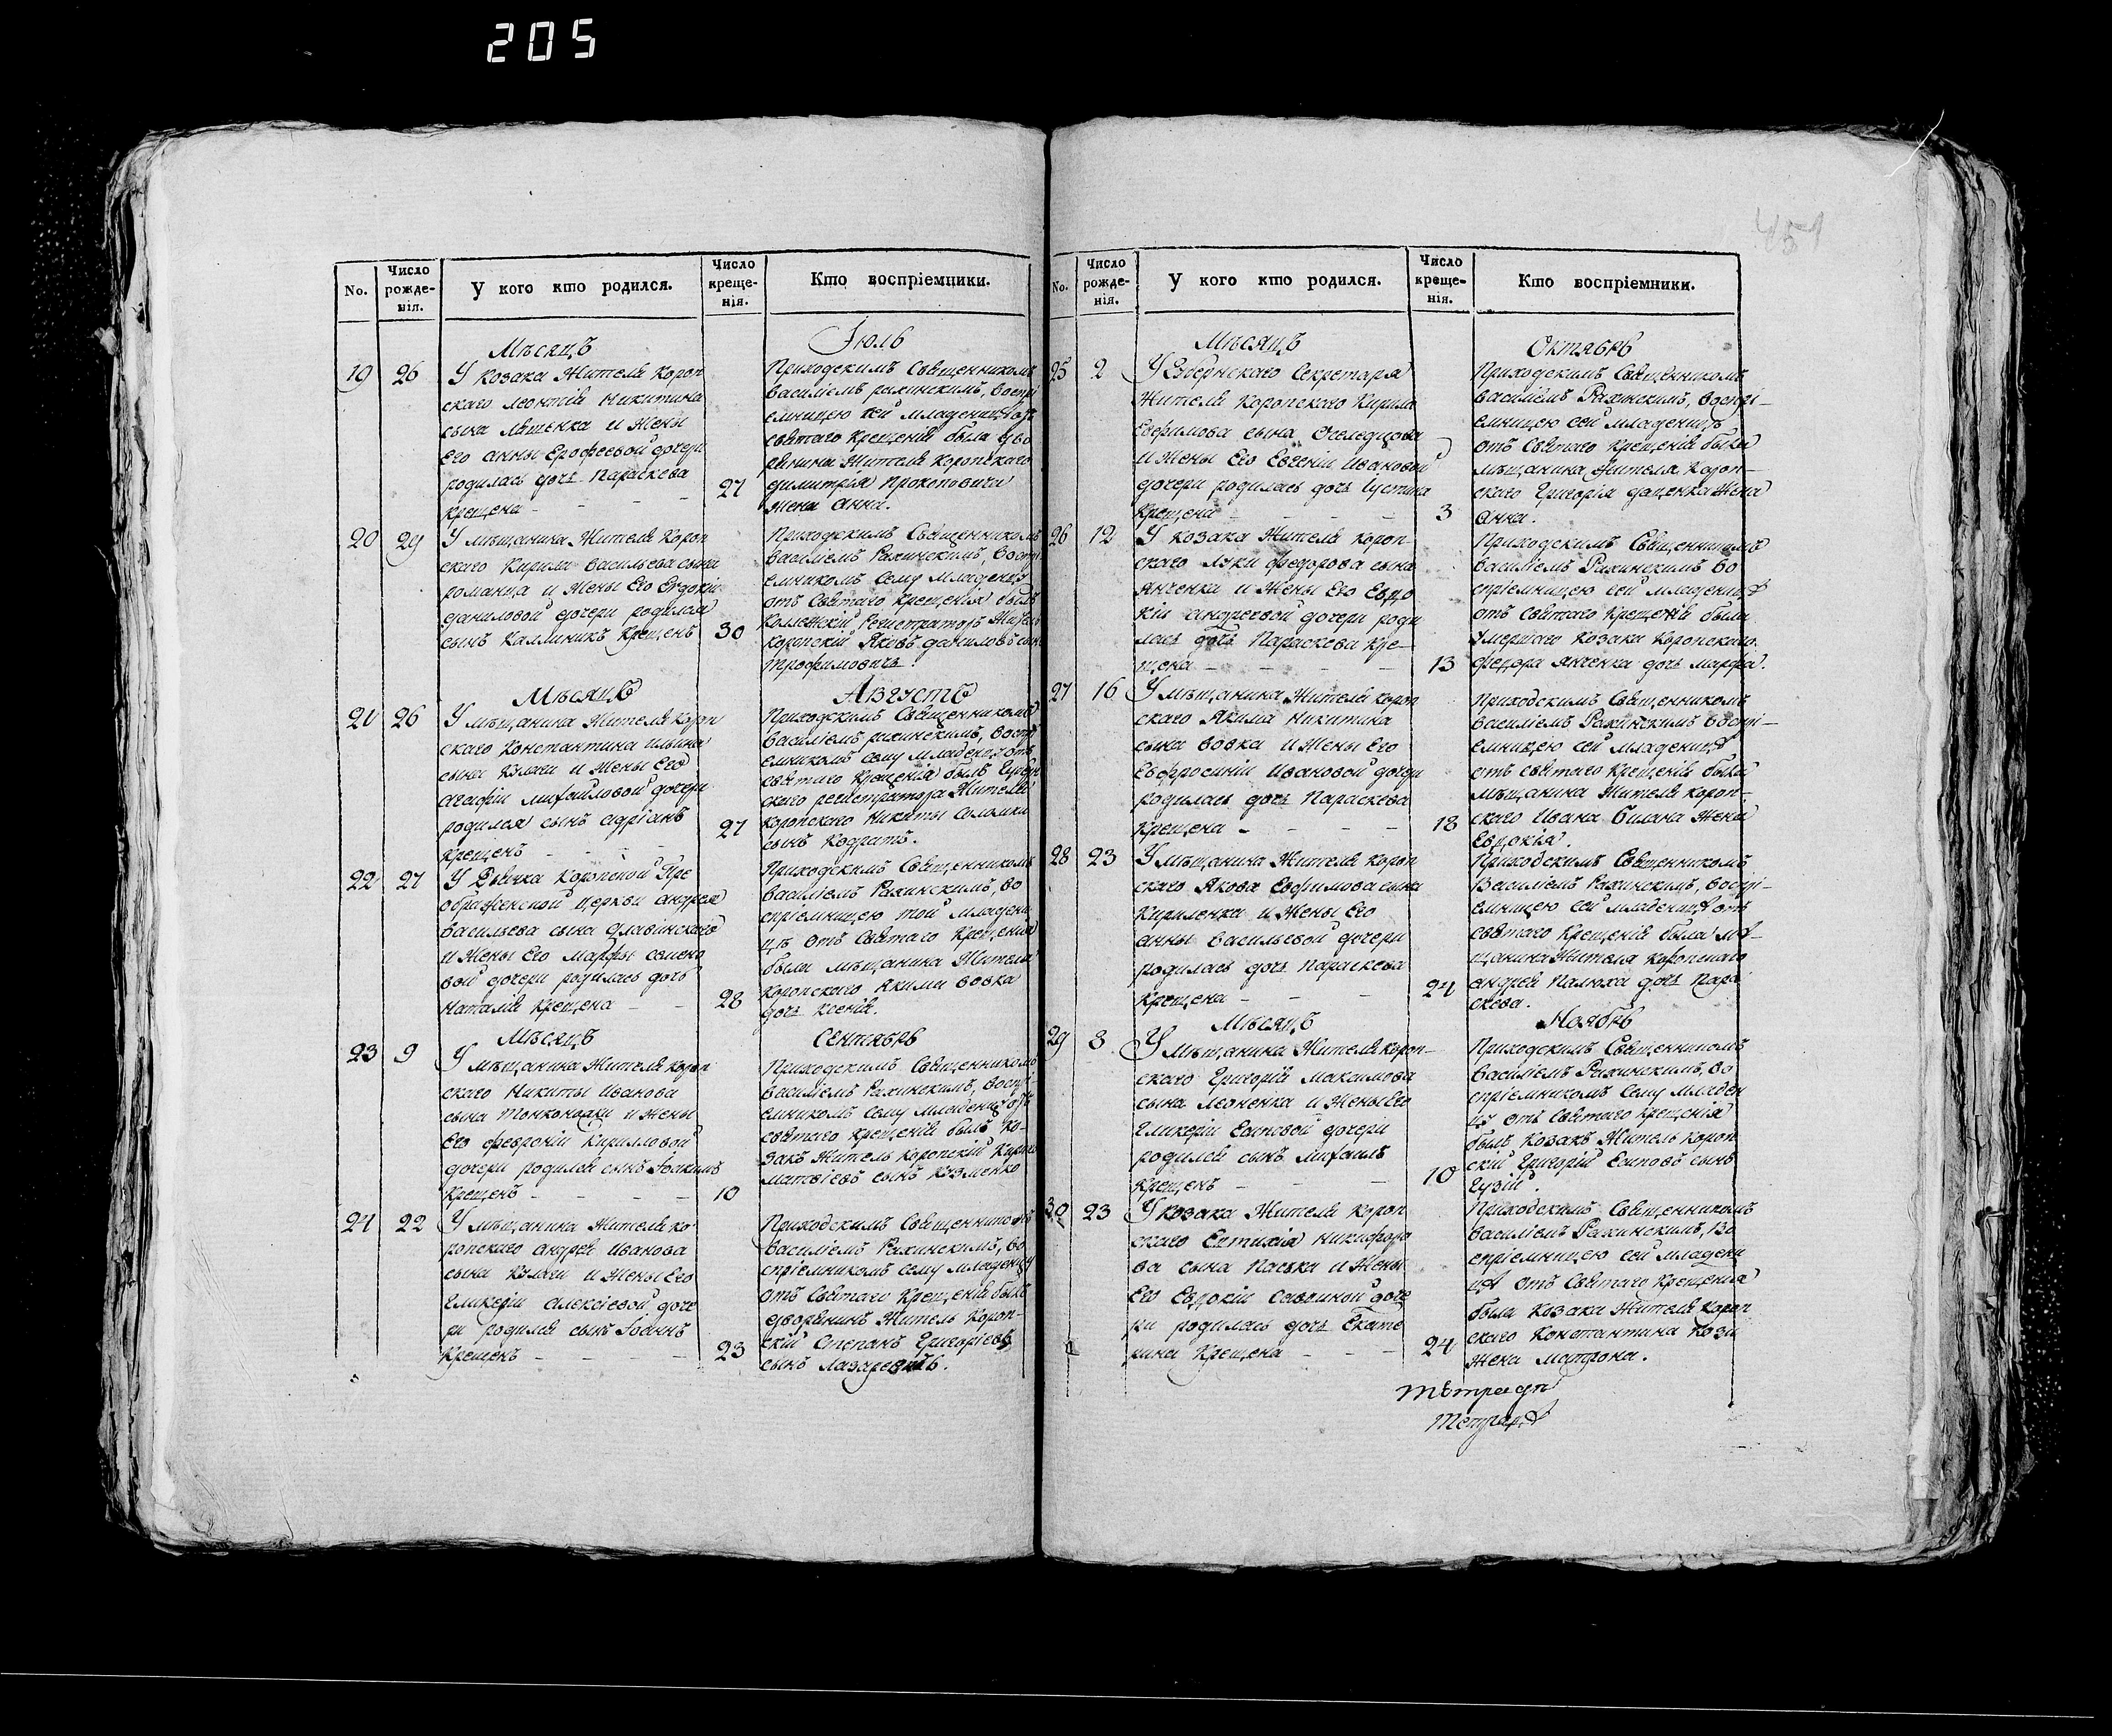 205
451
No.
Число рожде- нія.
У кого кто родился.
Число креще- нія.
Кто воспріемники.
Мѣсяцъ
Іюль
19 26 У козака жителя Короп
скаго Леонтія Никитина
сына и жены
его Анны Ерофеевой дочери
родилась дочь Параскева
крещена - - - - 27
Приходскимъ Священникомъ
Василіемъ Рахинскимъ, воспрі
емницею сей младеницѣ отъ
святаго крещенія была дво
рянина жителя Коропскаго
Димитрія Прокоповича
жена Анна.
20 29 У мѣщанина жителя Короп
скаго Кирила Васильева сына
Романца и жены его Евдокіи
Даниловой дочери родился
сынъ Каллиникъ крещенъ 30
Приходскимъ Священникомъ
Василіемъ Рахинскимъ, воспрі
емникомъ сему младенцу
отъ Святаго крещенія былъ
коллежскій регистраторъ житель
Коропскій Яковъ Даниловъ сынъ
Трофимовичъ.
Мѣсяцъ
Августъ
21 26 У мѣщанина жителя Короп
скаго Константина Ильина
сына и жены его
Агафіи Михайловой дочери
родился сынъ Адріанъ
крещенъ - - - - 27
Приходскимъ Священникомъ
Василіемъ Рахинскимъ, воспрі
емникомъ сему младенцу отъ
святаго крещенія былъ Губерн
скаго регистратора жителя
Коропскаго Никиты
сынъ Кодратъ.
22 27 У Дьячка Коропской Пре
ображенской церкви Андрея
Васильева сына
и жены его Марфы Семено
вой дочери родилась дочь
Наталія крещена - - 28
Приходскимъ Священникомъ
Василіемъ Рахинскимъ, во
спріемницею той младени
цѣ отъ Святаго крещенія
была мѣщанина жителя
Коропскаго Якима Вовка
дочь Ксенія.
Мѣсяцъ
Сентябрь
23 9 У мѣщанина жителя Короп
скаго Никиты Иванова
сына и жены
его Февроніи Кирилловой
дочери родился сынъ Іоакимъ
крещенъ - - - - 10
Приходскимъ Священникомъ
Василіемъ Рахинскимъ, воспрі-
емникомъ сему младенцу отъ
святаго крещенія былъ ко-
закъ житель Коропскій Кирило
Матвіевъ сынъ Кузменко
24 22 У мѣщанина жителя ко-
ропскаго Андрея Иванова
сына и жены его
Гликеріи Алексіевой доче
ри родился сынъ Іоаннъ
крещенъ - - - - 23
Приходскимъ Священникомъ
Василіемъ Рахинскимъ, во
спріемникомъ сему младенцу
отъ Святаго крещенія былъ
дворянинъ житель Короп-
скій Степанъ Григоріевъ
сынъ Лазаревичъ.
No.
Число рожде- нія.
У кого кто родился.
Число креще- нія.
Кто воспріемники.
Мѣсяцъ
Октябрь
25 2 У Губернскаго Секретаря
жителя Коропскаго Кирила
Евфимова сына Оселедцова
и жены его Евгеніи Ивановой
дочери родилась дочь Іустина
крещена - - - - 3
Приходскимъ Священникомъ
Василіемъ Рахинскимъ, воспрі-
емницею сей младеницѣ
отъ Святаго крещенія была
мѣщанина жителя Короп-
скаго Григорія Даценка жена
Анна.
26 12 У козака жителя Короп-
скаго Луки Федорова сына
Янченка и жены его Евдо
кіи Андреевой дочери роди
лась дочь Параскева кре-
щена - - - - 13
Приходскимъ Священникомъ
Василіемъ Рахинскимъ во
спріемницею сей младеницѣ
отъ святаго крещенія была
умершаго козака Коропскаго
Федора Янченка дочь Марфа.
27 16 У мѣщанина жителя Короп
скаго Якима Никитина
сына Вовка и жены его
Евфросиніи Ивановой дочери
родилась дочь Параскева
крещена - - - - 18
Приходскимъ Священникомъ
Василіемъ Рахинскимъ воспрі-
емницею сей младеницѣ
отъ святаго крещенія была
мѣщанина жителя Короп-
скаго Ивана Билана жена
Евдокія.
28 23 У мѣщанина жителя Короп
скаго Якова Евфимова сына
Кириленка и жены его
Анны Васильевой дочери
родилась дочь Параскева
крещена - - - 24
Приходскимъ Священникомъ
Василіемъ Рахинскимъ, воспрі-
емницею сей младеницѣ отъ
святаго крещенія была мѣ-
щанина жителя Коропскаго
Андрея Палюха дочь Пара
скева.
Мѣсяцъ
Ноябрь
29 8 У мѣщанина жителя Короп-
скаго Григорія Максимова
сына Леоненка и жены его
Гликеріи Есиповой дочери
родился сынъ Михаилъ
крещенъ - - - 10
Приходскимъ Священникомъ
Василіемъ Рахинскимъ, во
спріемникомъ сему младен
цу отъ Святаго крещенія
былъ козакъ житель Короп
скій Григорій Есиповъ сынъ
Гузій.
30 23 У козака жителя Короп
скаго Евтихія Никифоро
ва сына Паська и жены
его Евдокіи Саввиной доче
ри родилась дочь Екате
рина крещена - - - 24
Приходскимъ Священникомъ
Василіемъ Рахинскимъ, во
спріемницею сей младени
цѣ отъ Святаго крещенія
была козака жителя Короп
скаго Константина Кози
жена Матрона.